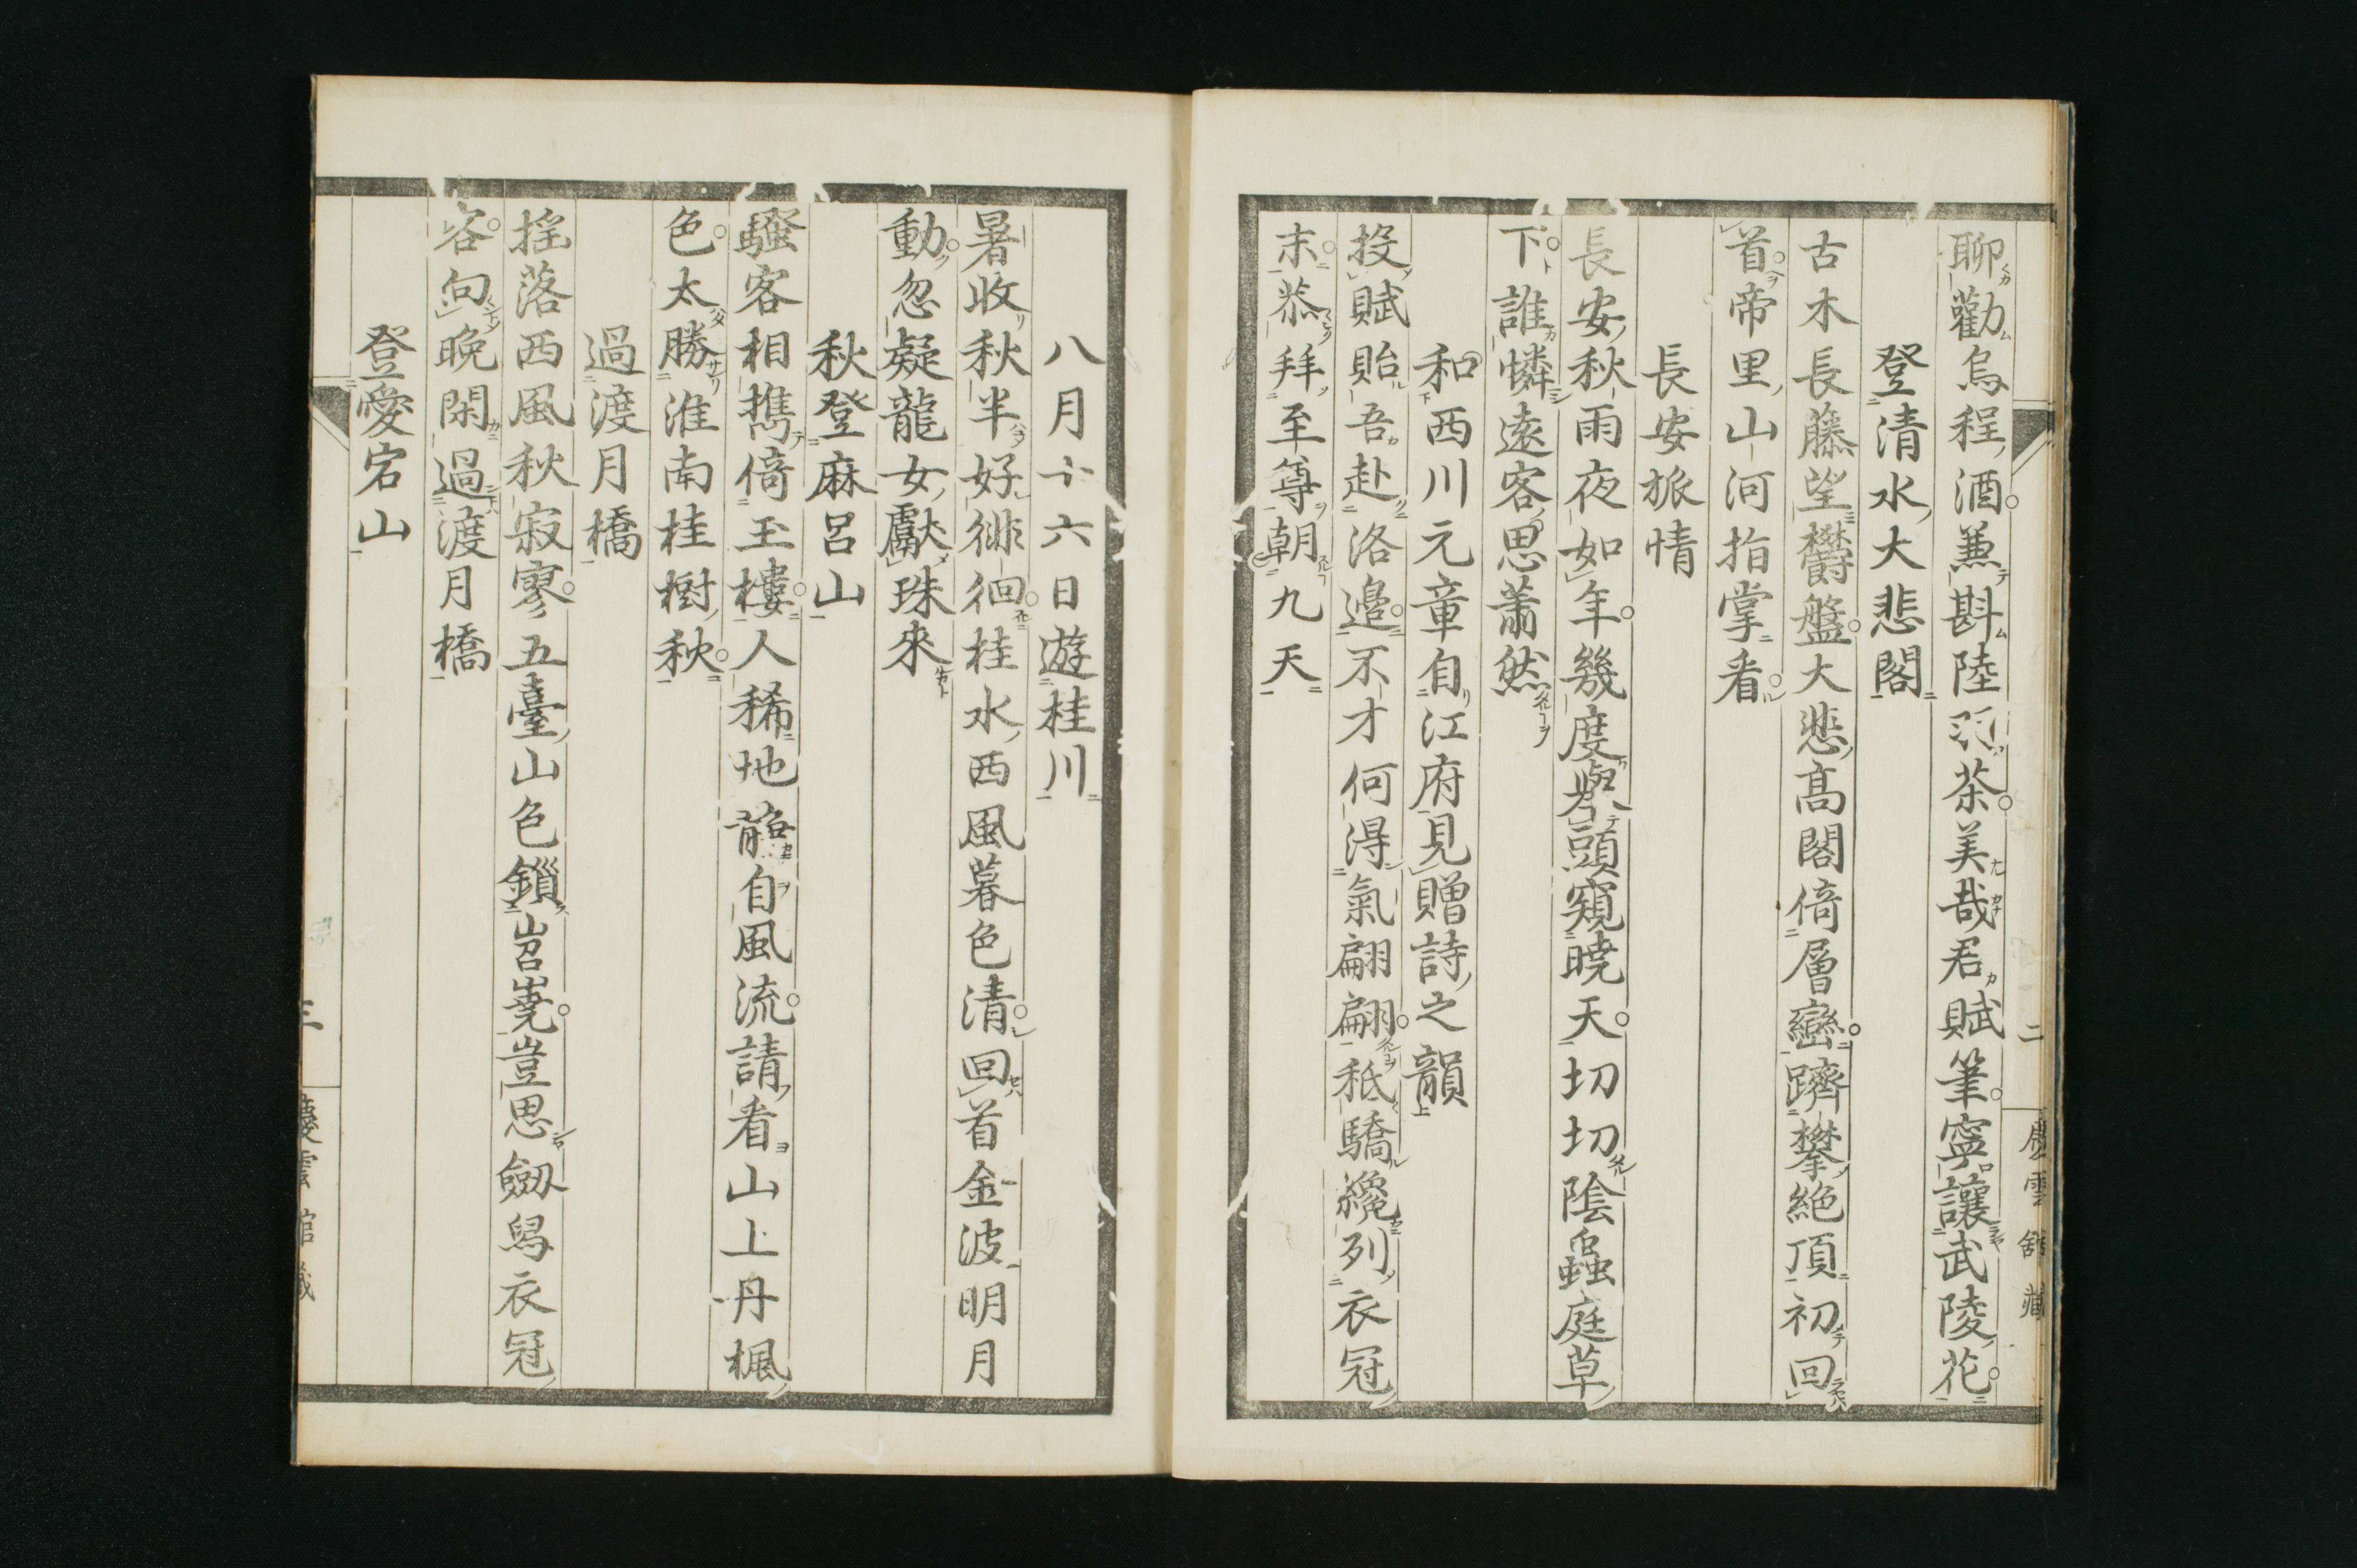 聊勸烏程酒兼斟陸羽茶美哉君賦筆寧讓武陵花
登清水大悲閣
古木長藤望欝盤大悲高閣倚層巒躋攀絶頂初回
首帝里山河指掌看
長安旅情
長安秋雨夜如年幾度擧頭窺曉天切切陰蟲庭草
下誰憐遠客思蕭然
和西川元章自江府見贈詩之韻
投賦貽吾赴洛邉不才何得氣翩翩秪驕纔列衣冠
末恭拜至尊朝九天
二
慶雲舘藏
八月十六日遊桂川
暑收秋半好徘徊桂水西風暮色清回首金波明月
動忽疑龍女獻珠來
秋登麻呂山
騷客相携倚玉樓人稀地静自風流請看山上丹楓
色太勝淮南桂樹秋
過渡月橋
搖落西風秋寂寥五臺山色鎻岧嶤豈思劔舄衣冠
客向晩閑過渡月橋
登愛宕山
三
慶雲舘藏